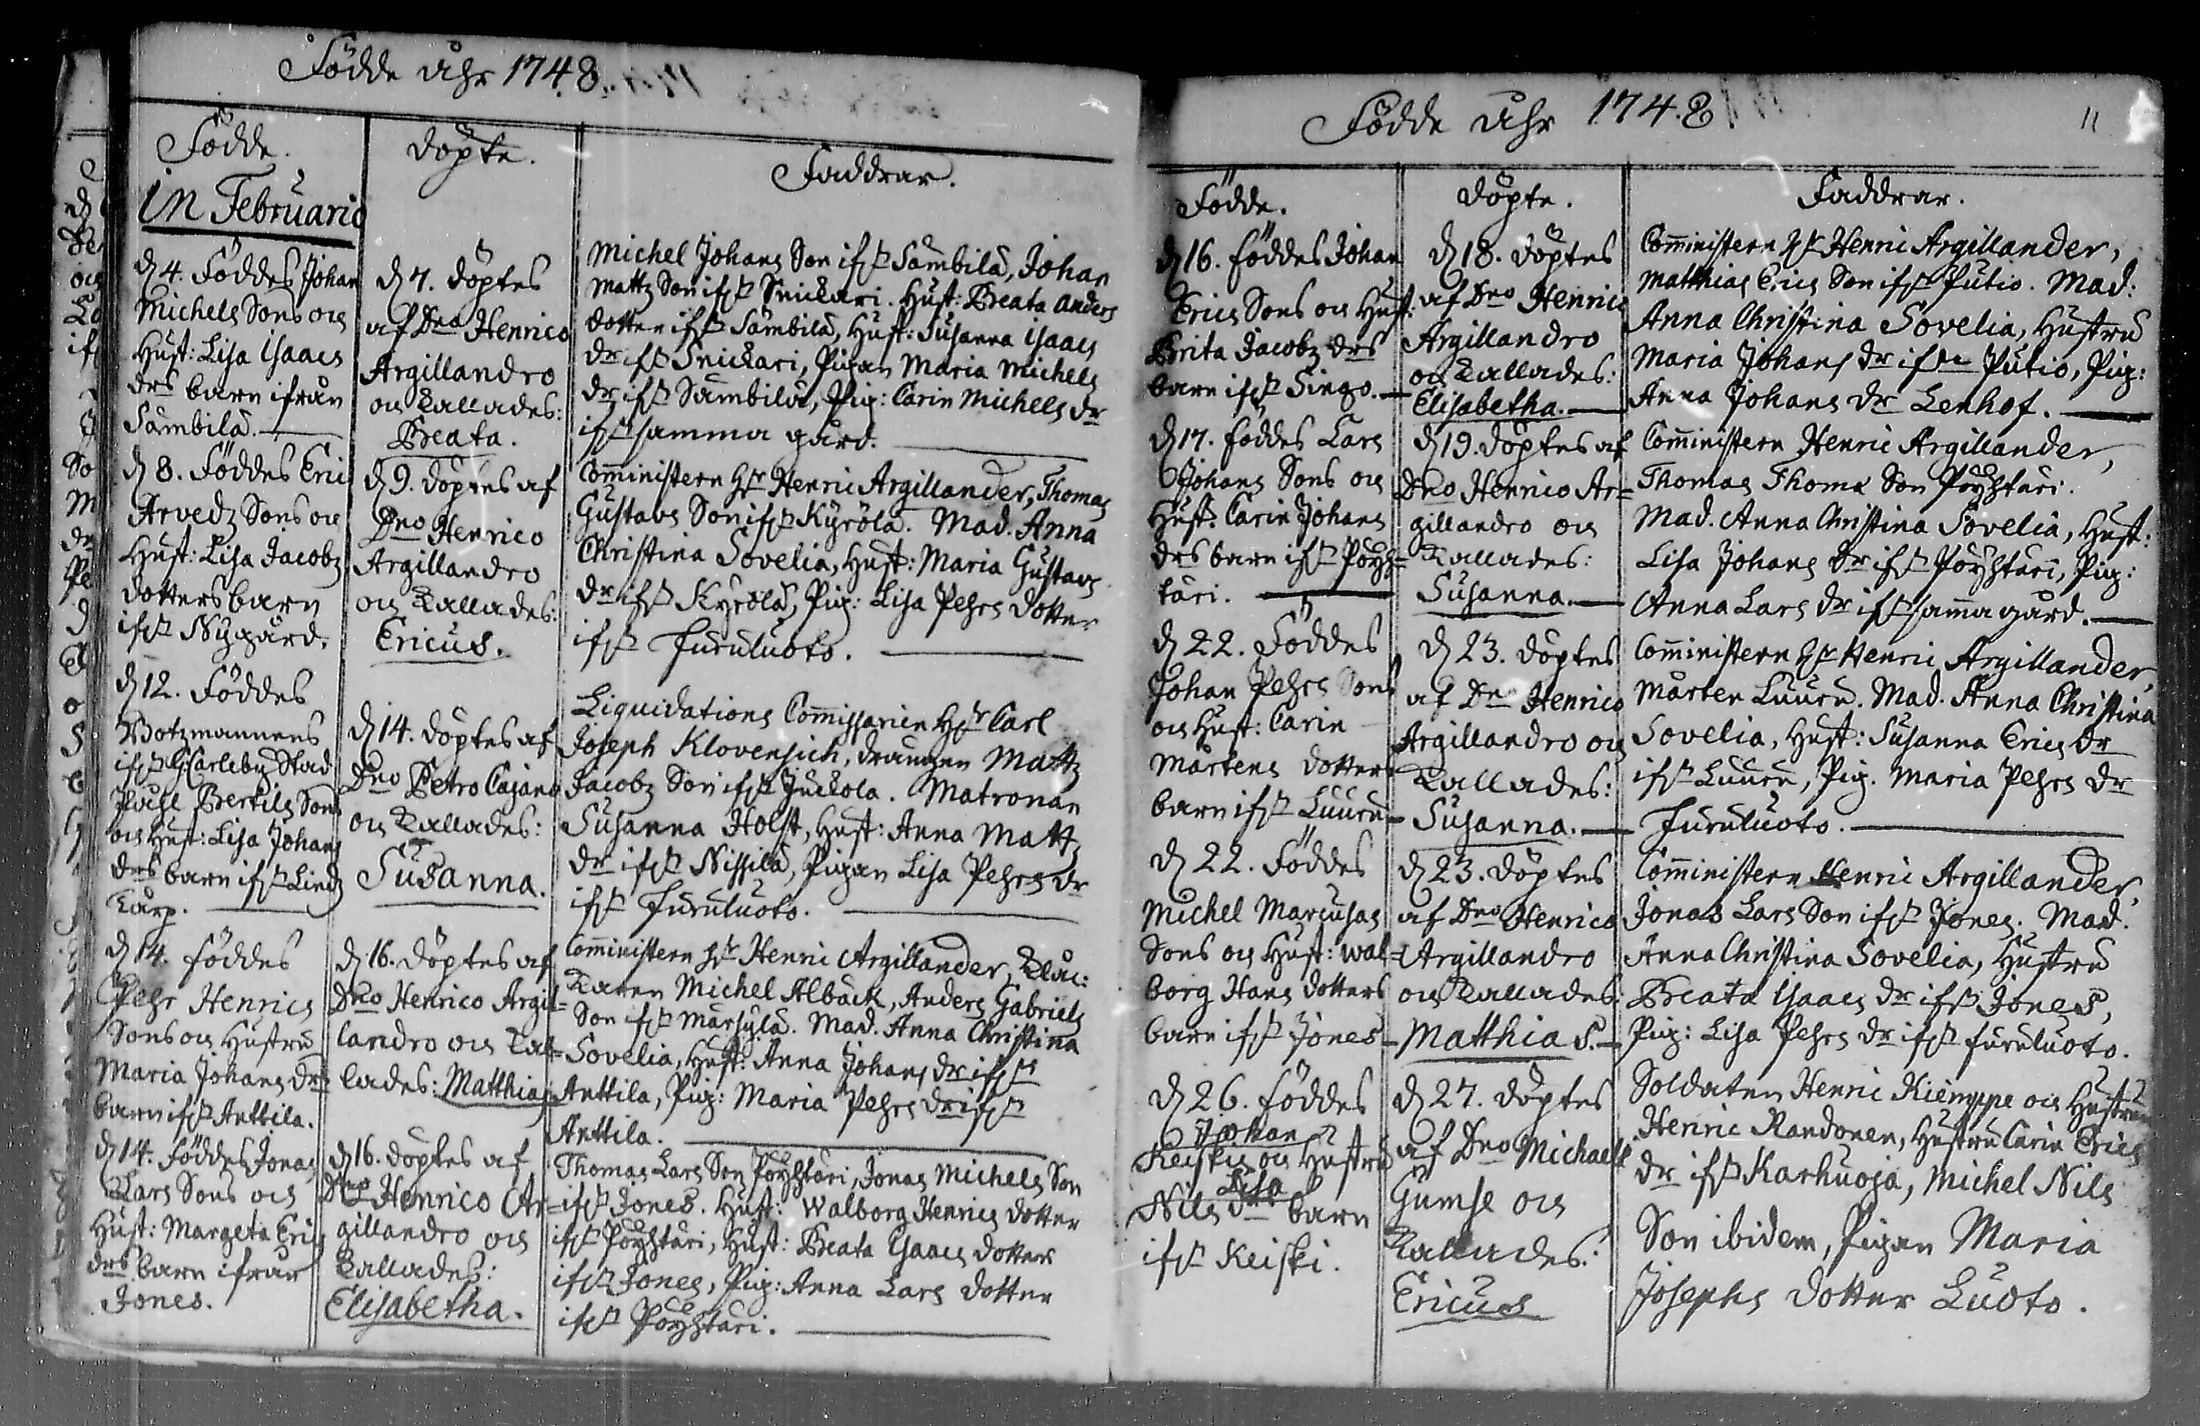 Födde åhr 1748.
Födde.
döpte.
Faddrar.
in Februario
d 4. Föddes Johan
Michels Sons och
Hust: Lisa Isaacs
drs barn ifrån
Sämbilä.
d 7. döptes
af Dno Henrico
Argillandro
och kallades:
Beata.
Michel Johans Son ifrån Sämbilä, Johan
Mattz Son ifrån Snickari. Hust: Beata Anders
dotter ifrån Sämbilä, Hust: Susanna Isaacs
dr ifrån Snickari, Pigan Maria Michels
dr ifrån Sämbilä, Pig: Carin Michels dr
ifrån samma gård.
d 8. Föddes Eric
Arvedz Sons och
Hust: Lisa Jacobz
dotters barn
ifrån Nygård.
d 9. döptes af
Dno Henrico
Argillandro
och kallades:
Ericus.
Comministern Hr Henric Argillander, Thomas
Gustavs Son ifrån Kyrölä. Mad. Anna
Christina Sovelia, Hust: Maria Gustavs
dr ifrån Kyrölä, Pig: Lisa Pehrs dotter
ifrån Furuluoto.
d 12. Föddes
Botzmannens
ifrån G:Carleby Stad
Påhl Bertils Sons
och Hust: Lisa Johans
drs barn ifrån Lind
karp.
d 14. döptes af
Dno Petro Cajano
och kallades:
Susanna.
Liquidations Commissarien Hr Carl
Joseph Klovensich, drängen Mattz
Jacobz Son ifrån Juckola. Matronan
Susanna Holst, Hust: Anna Mattz
dr ifrån Nissilä, Pigan Lisa Pehrs dr
ifrån Furuluoto.
d 14. föddes
Pehr Henrics
Sons och Hustru
Maria Johans drs
barn ifrån Anttila.
d 16. döptes af
Dno Henrico Argil=
landro och kal=
lades: Matthias
Comministern Hr Henric Argillander, Kläc:
karen Michel Alback, Anders Gabriels
Son ifrån Marsylä. Mad. Anna Christina
Sovelia, Hust: Anna Johans dr ifrån
Anttila, Pig: Maria Pehrs dr ifrån
Anttila.
d 14. Föddes Jonas
Lars Sons och
Hust: Margeta Erics
drs barn ifrån
Jones.
d 16. döptes af
Dno Henrico Ar=
gillandro och
kallades:
Elisabetha.
Thomas Lars Son Pöyhtäri, Jonas Michels Son
ifrån Jones. Hust: Walborg Henrics dotter
ifrån Pöyhtäri, Hust: Beata Isaacs dotter
ifrån Jones, Pig: Anna Lars dotter
ifrån Pöyhtäri.
Födde åhr 1748
11
Födde.
döpte.
Faddrar.
d 16. föddes Johan
Erics Sons och Hust:
Brita Jacobz drs
barn ifrån Singo.
d 18. döptes
af Dno Henrico
Argillandro
och kallades:
Elisabetha.
Comministern Hr Henric Argillander,
Matthias Erics Son ifrån Putio. Mad:
Anna Christina Sovelia, Hustru
Maria Johans dr ifrån Putio, Pig:
Anna Johans dr Lenhof.
d 17. föddes Lars
Johans Sons och
Hust: Carin Johans
drs barn ifrån Pöyh=
täri.
d 19. döptes af
Dno Henrico Ar=
gillandro och
kallades:
Susanna.
Comministern Henric Argillander,
Thomas Thomæ Son Pöyhtäri.
Mad. Anna Christina Sovelia, Hust:
Lisa Johans dr ifrån Pöyhtäri, Pig:
Anna Lars dr ifrån samma gård.
d 22. Föddes
Johan Pehrs Sons
och Hust: Carin
Mårtens dotters
barn ifrån Luuru
d 23. döptes
af Dno Henrico
Argillandro och
kallades:
Susanna.
Comministern Hr Henric Argillander,
Mårten Luuru. Mad. Anna Christina
Sovelia, Hust: Susanna Erics dr
ifrån Luuru, Pig. Maria Pehrs dr
Furuluoto.
d 22. Föddes
Michel Marcusas
Sons och Hust: Wal=
borg Hans dotters
barn ifrån Jones
d 23. döptes
af Dno Henrico
Argillandro
och kallades:
Matthias.
Comministern Henric Argillander,
Jonas Lars Son ifrån Jones. Mad.
Anna Christina Sovelia, Hustru
Beata Isaacs dr ifrån Jones,
Pig: Lisa Pehrs dr ifrån furuluoto.
d 26. föddes
Johan
Keiskis och Hustru
Lisa
Nils drs barn
ifrån Keiski.
d 27. döptes
af Dno Michaele
Gumse och
kallades:
Ericus
Soldaten Henric Kiemppe och Hustrun
Henric Randonen, Hustru Carin Erics
dr ifrån Karhuoja, Michel Nils
Son ibidem, Pigan Maria
Josephs dotter Luoto.